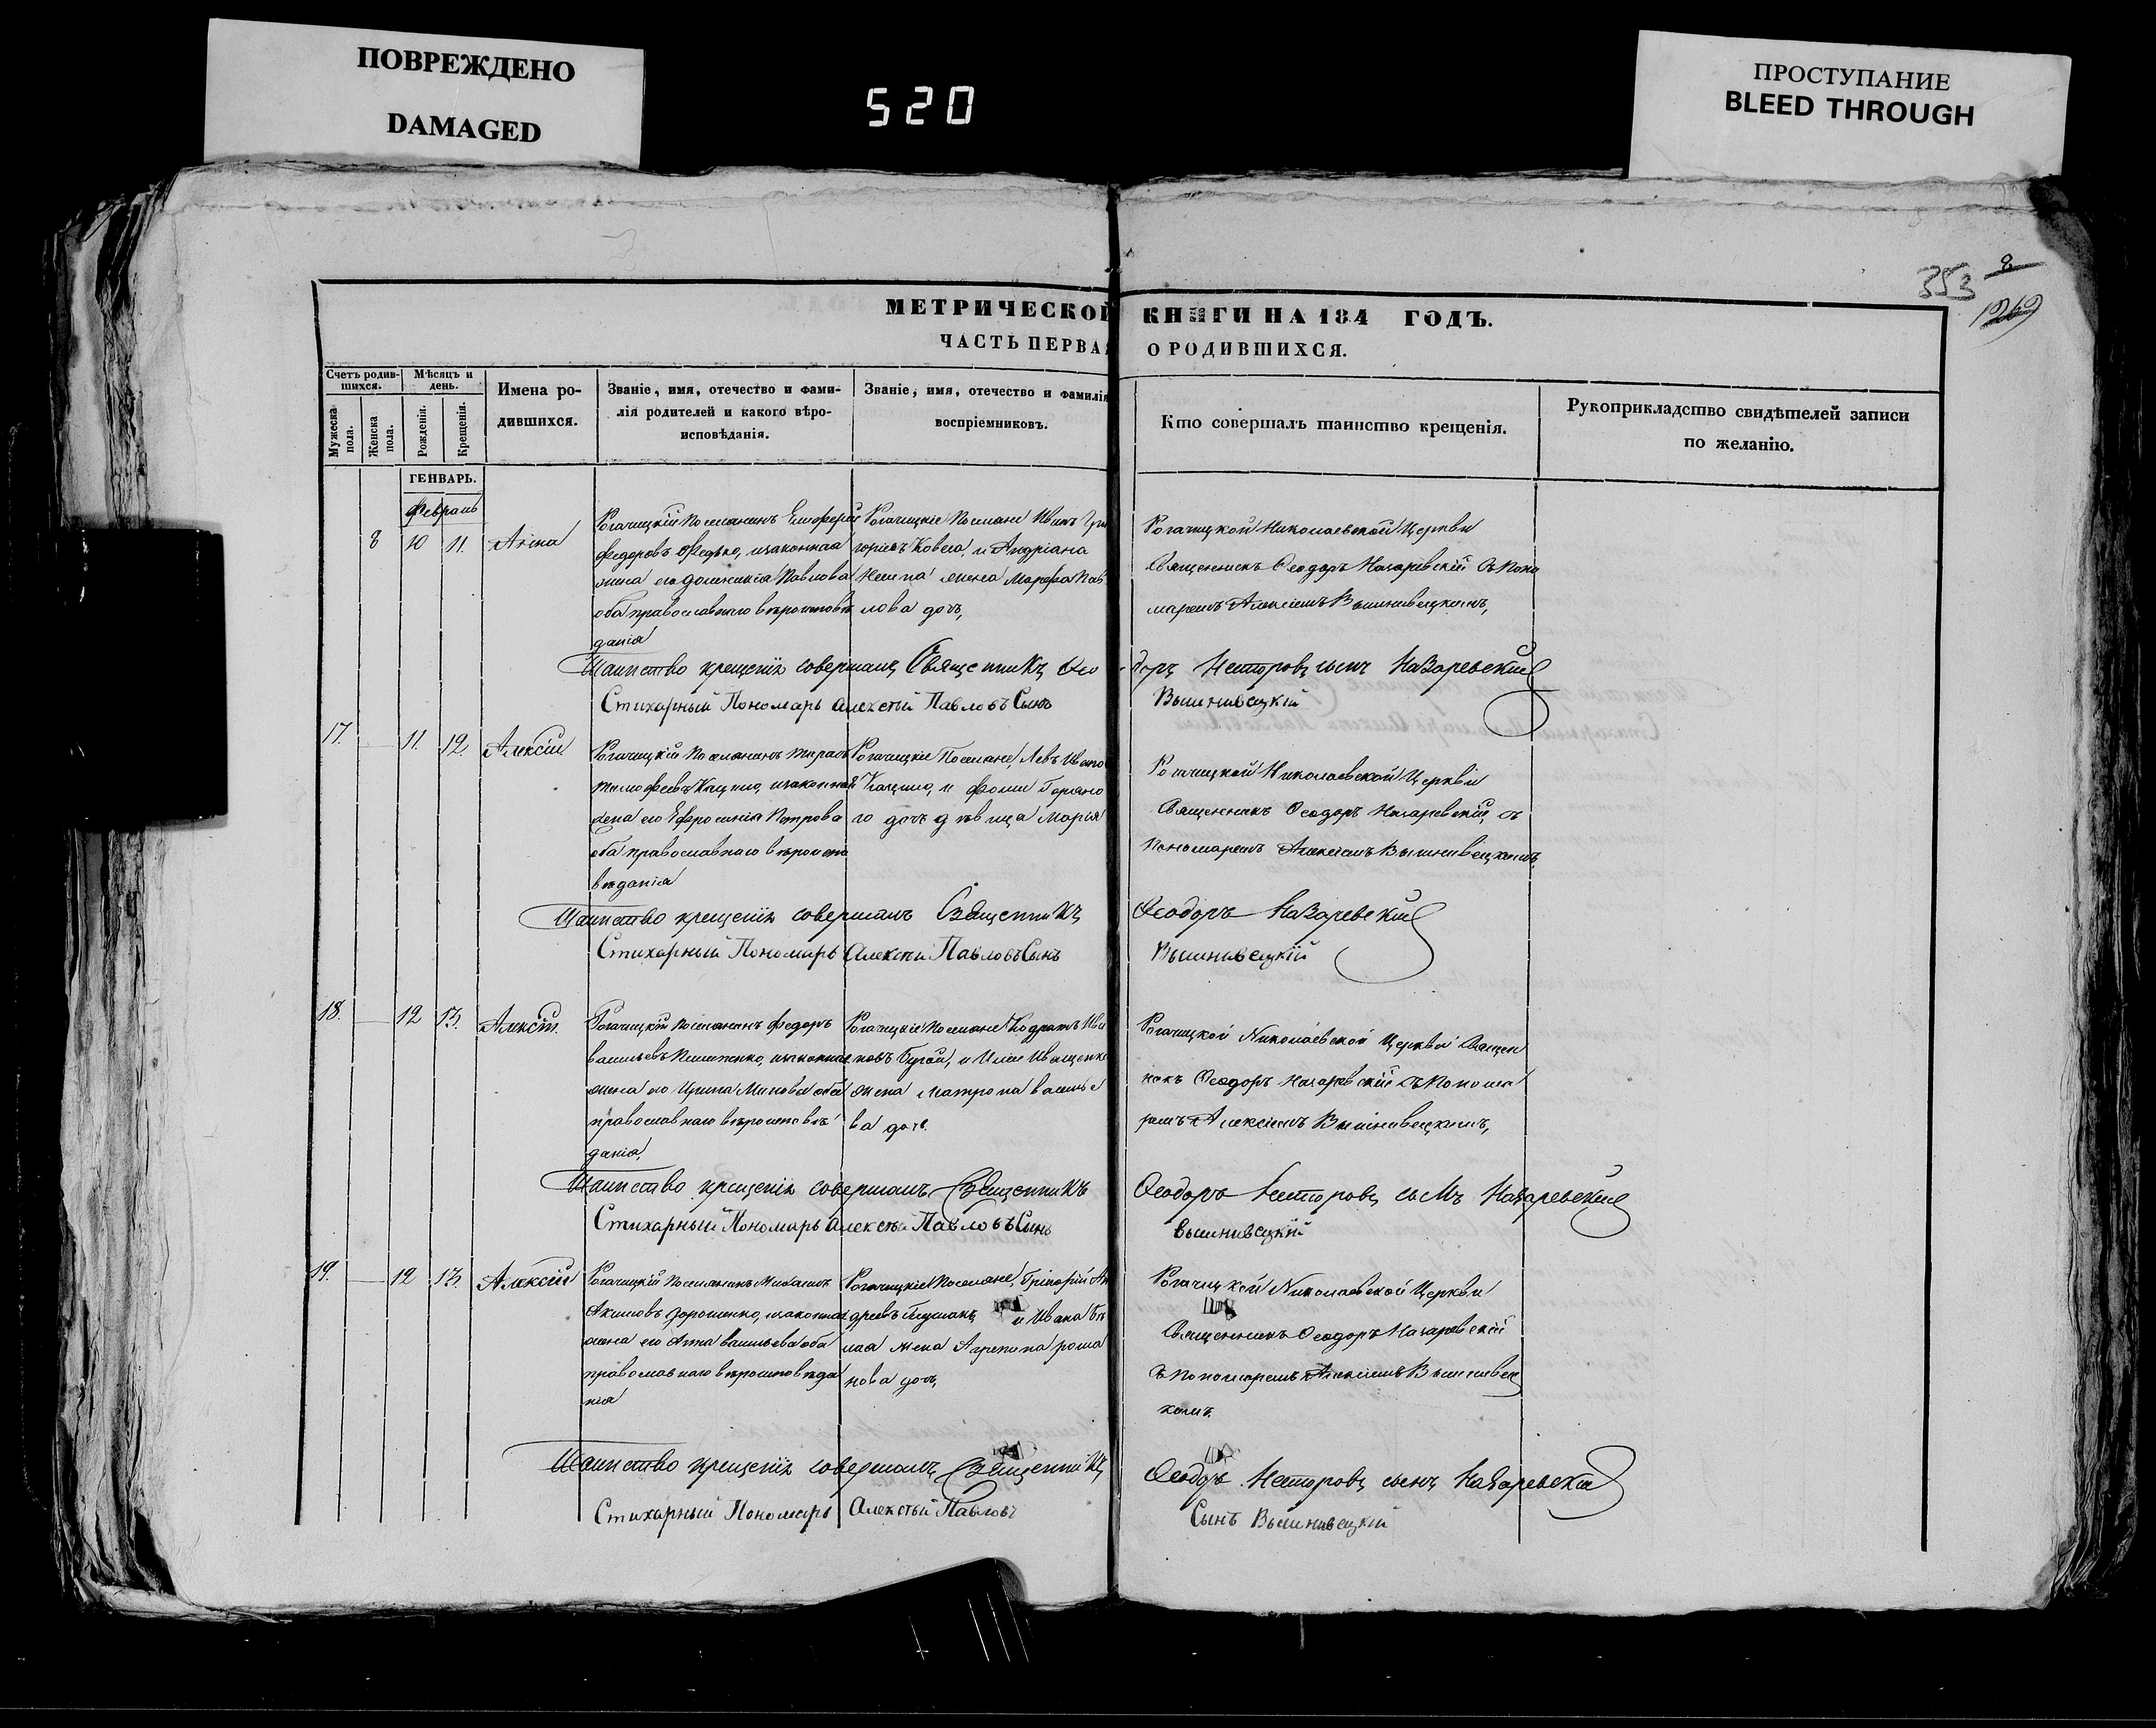 ПОВРЕЖДЕНО
DAMAGED
520
ПРОСТУПАНИЕ
BLEED THROUGH
353
1269
МЕТРИЧЕСКОЙ КНИГИ НА 184 ГОДЪ.
ЧАСТЬ ПЕРВАЯ О РОДИВШИХСЯ.
Счетъ родив-
шихся.
Мужеска
пола.
Женска
пола.
Мѣсяцъ и
день.
Рожденія.
Крещенія.
Имена ро-
дившихся.
Званіе, имя, отечество и фами-
лія родителей и какого вѣро-
исповѣданія.
Званіе, имя, отечество и фамилія
воспріемниковъ.
Кто совершалъ таинство крещенія.
Рукоприкладство свидѣтелей записи
по желанію.
ГЕНВАРЬ.
Февраль
8 10 11. Анна
Рогачицкій Поселянинъ Елефферій
Федоровъ Федько, изаконная
жена его Домникія Павлова
оба православнаго вѣроисповѣ
данія
Рогачицкіе Поселяне Иванъ Гри
горіевъ Ковега, и Андріана
жена Марфа Пав
лова дочь,
Рогачицкой Николаевской Церкви
Священникъ Ѳеодоръ Назаревскій съ Поно
маремъ Алексіемъ Вышнивецкимъ,
Таинство крещенія совершалъ Священникъ Ѳеодоръ Несторовъ сынъ Назаревскій
Стихарный Пономарь Алексѣй Павловъ Сынъ Вышнивецкій
17. 11. 12. Алексій
Рогачицкій Поселянинъ Тарасъ
Тимофеевъ изаконная
жена его Ефросинія Петрова
оба православнаго вѣроиспо
вѣданія
Рогачицкіе Поселяне, Левъ Ивано
и Фомы Горяно
го дочь дѣвица Марія
Рогачицкой Николаевской Церкви
Священникъ Ѳеодоръ Назаревскій съ
Пономаремъ Алексіемъ Вышнивецкимъ,
Таинство крещенія совершилъ Священникъ Ѳеодоръ Назаревскій
Стихарный Пономарь Алексѣй Павловъ Сынъ Вышнивецкій
18. 12 13. Алексій.
Рогачицкій Поселянинъ Федоръ
Васильевъ изаконная
жена его Ирина Минова оба
православнаго вѣроисповѣ
данія,
Рогачицкіе Поселяне Кодратъ Ива
новъ Бугай, и Ильи Иващенка
жена Матрона Василье
ва дочь.
Рогачицкой Николаевской Церкви Священ
никъ Ѳеодоръ Назаревскій съ Понома
ремъ Алексіемъ Вышнивецкимъ,
Таинство крещенія совершалъ Священникъ Ѳеодоръ Несторовъ сынъ Назаревскій
Стихарный Пономарь Алексѣй Павловъ Сынъ Вышнивецкій
19. 12 13. Алексій
Рогачицкій Поселянинъ Михаилъ
Акимовъ Дорошенко, изаконная
жена его Анна Васильева оба
православнаго вѣроисповѣда
нія
Рогачицкіе Поселяне, Григорій Ан
дреевъ и Ивана
жена Агрепина Рома
нова дочь,
Рогачицкой Николаевской Церкви
Священникъ Ѳеодоръ Назаревскій
съ Пономаремъ Алексіемъ Вышнивец
кимъ.
Таинство крещенія совершалъ Священникъ Ѳеодоръ Несторовъ сынъ Назаревскій
Стихарный Пономарь Алексѣй Павловъ Сынъ Вышнивецкій